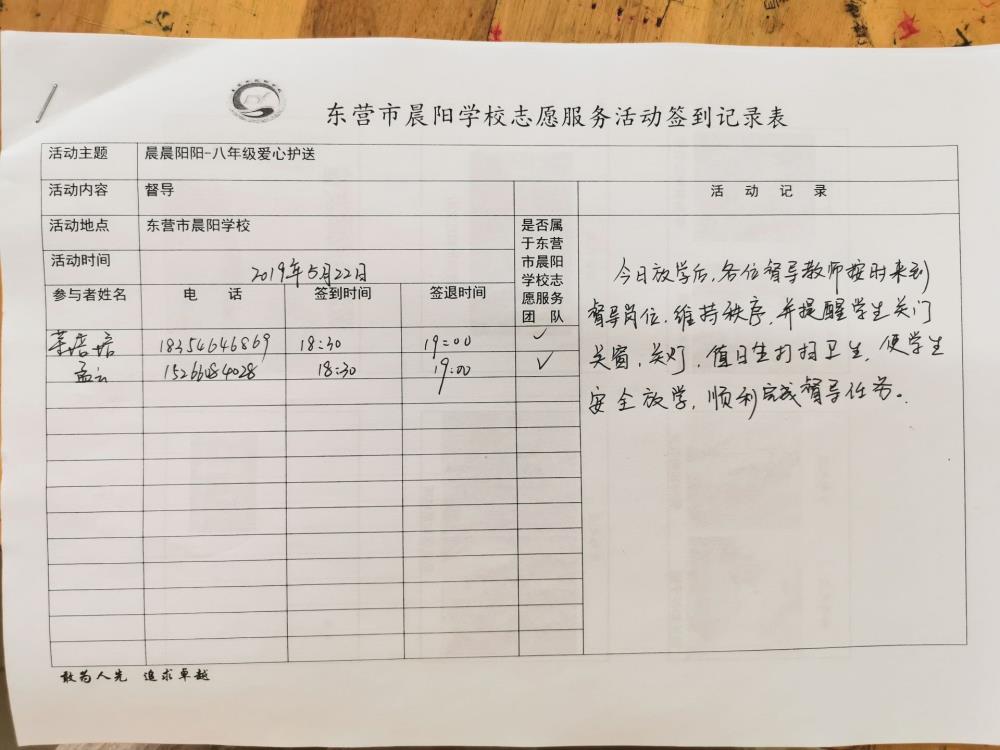 东营市晨阳学校志愿服务活动签到记录表
活动主题 晨晨阳阳-八年级爱心护送
活动内容 督导
活动地点 东营市晨阳学校
活动时间 2019年5月22日
参与者姓名 电 话 签到时间 签退时间
是否属
于东营
市晨阳
学校志
愿服务
团 队
培培 18354646869 18:30 19:00 ✓
孟云 15266084028 18:30 19:00 ✓
活 动 记 录
今日放学后,各位督导教师按时来到
督导岗位,维持秩序,并提醒学生关门
关窗,关灯,值日生打扫卫生,使学生
安全放学,顺利完成督导任务。
敢为人先 追求卓越